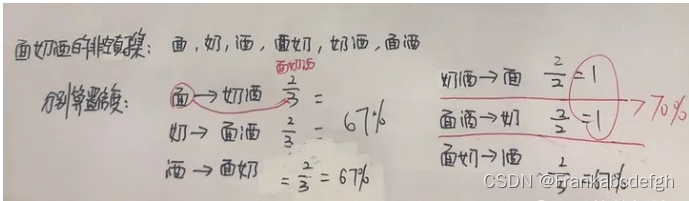 面奶酒的非空真子集: 面, 奶, 酒, 面奶, 奶酒, 面酒
面奶酒
分别算置信度: 面 → 奶酒 2/3 =
奶 → 面酒 2/3 = 67%
酒 → 面奶 = 2/3 = 67%
奶酒 → 面 2/2 = 1
面酒 → 奶 2/2 = 1 > 70%
面奶 → 酒 2/3 = 67%
CSDN @Erankabcdefgh